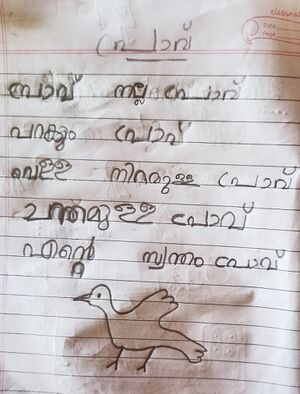 classm
Date
Page
പ്രാവ്
പ്രാവ് നല്ല പ്രാവ്
പറക്കും പ്രാവ്
വെള്ള നിറമുള്ള പ്രാവ്
ചന്തമുള്ള പ്രാവ്
എന്റെ സ്വന്തം പ്രാവ്